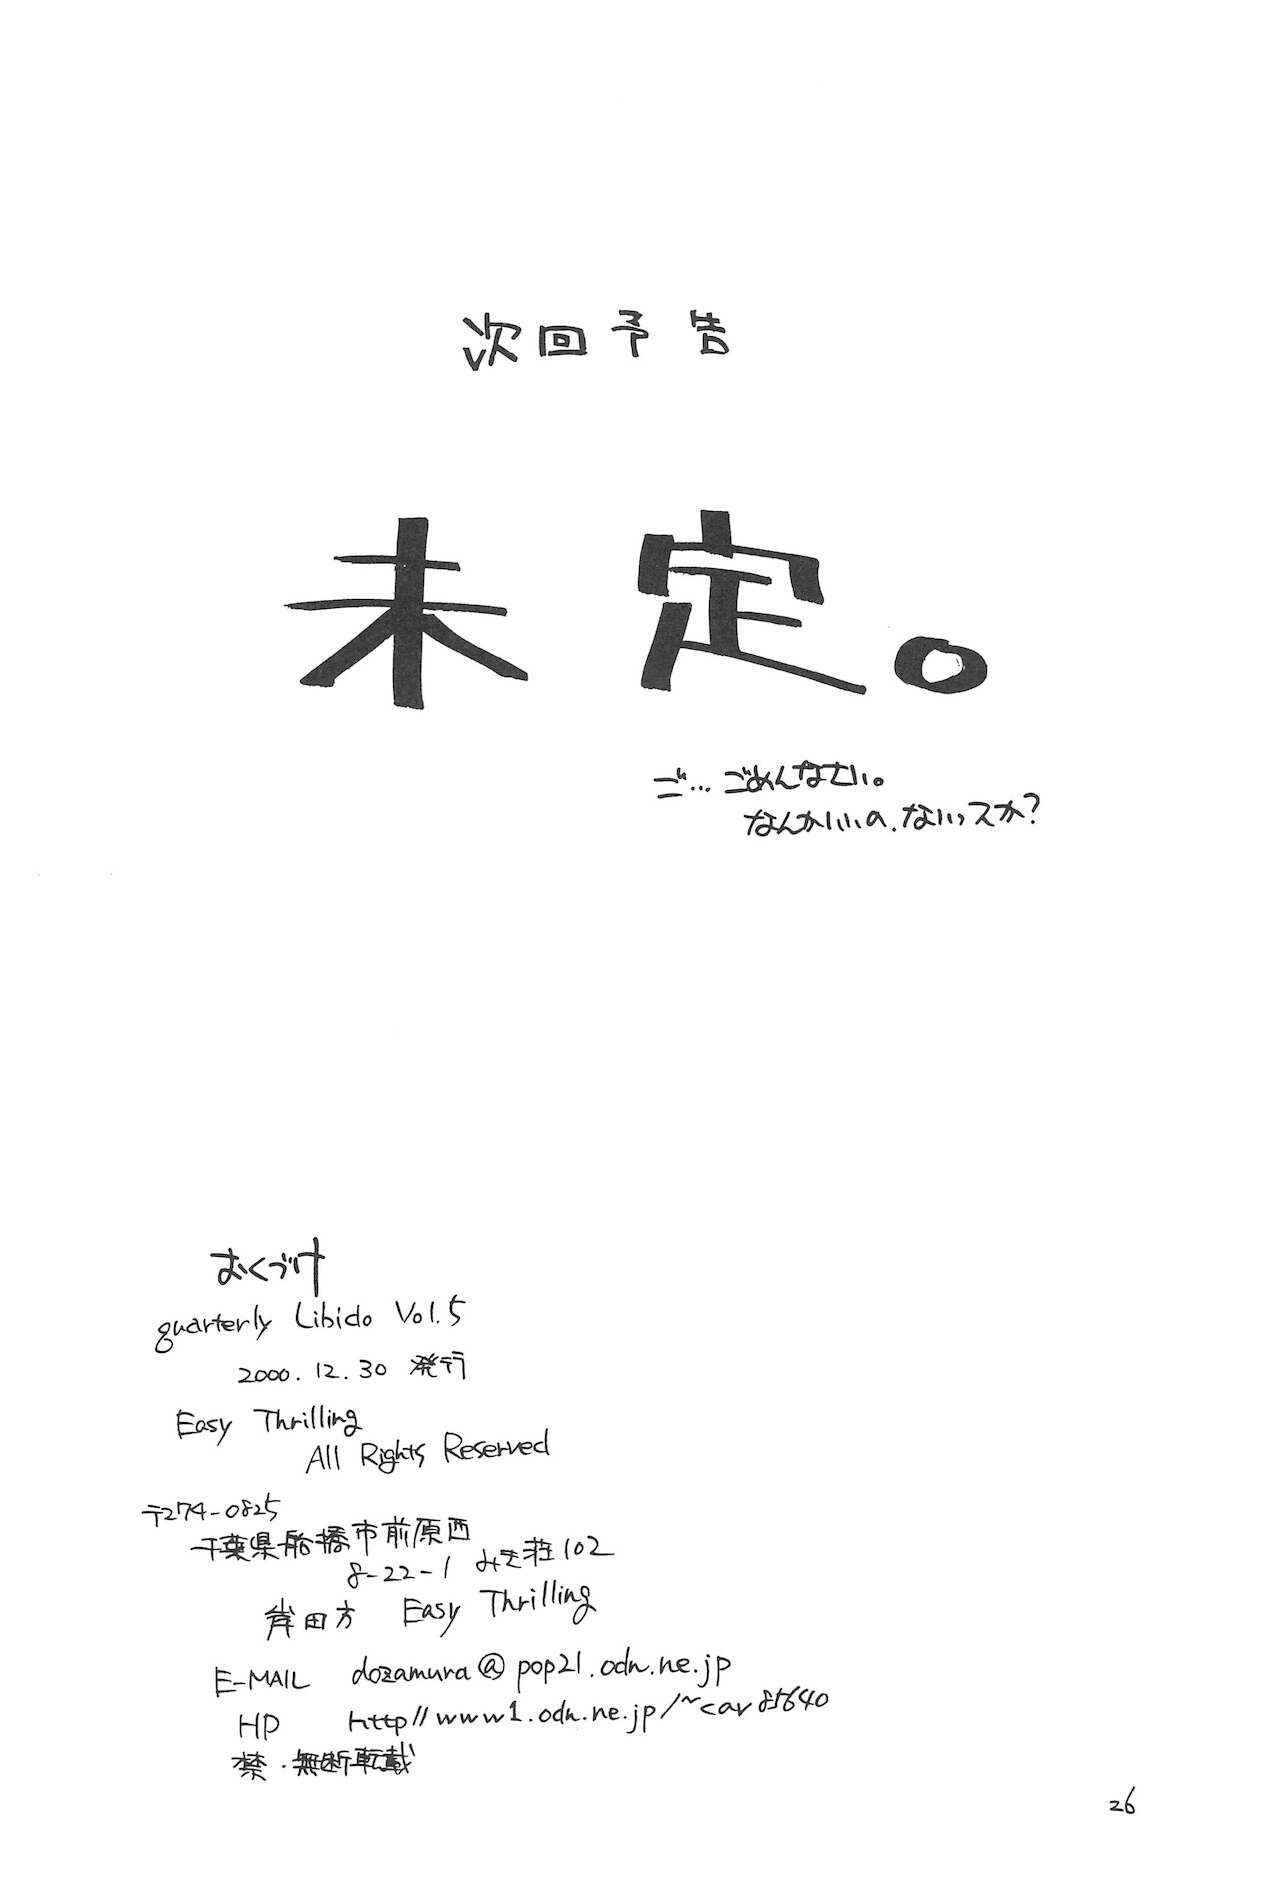 次回予告
未定。
ご…ごめんなさい。
なんかいいの、ないっスか?
おくづけ
quarterly Libido Vol.5
2000.12.30 発行
Easy Thrilling
All Rights Reserved
〒274-0825
千葉県船橋市前原西
8-22-1 みき荘102
岸田方 Easy Thrilling
E-MAIL dozamura@pop21.odn.ne.jp
HP http//www1.odn.ne.jp/~car85640
禁・無断転載
26